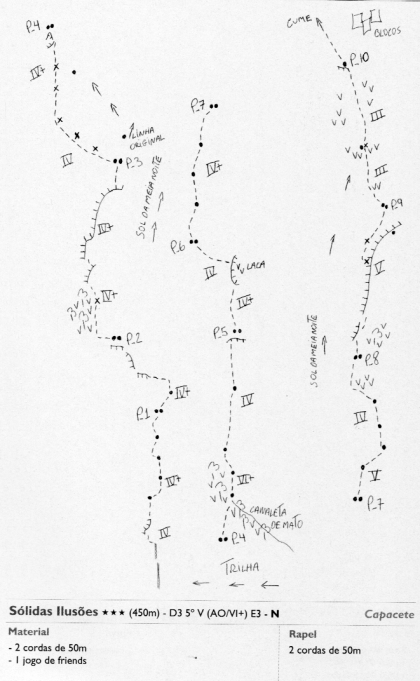 P_4
A
IV+
LINHA
ORIGINAL
IV
P_3
IV+
SOL DA MEIA NOITE
IV+
P_2
IV+
P_1
IV+
IV
P_7
IV+
P_6
IV
LACA
IV+
P_5
IV
VI+
CANALETA
DE MATO
P_4
TRILHA
CUME
BLOCOS
P_10
III
III
P_9
V
SOL DA MEIA NOITE
P_8
IV
V
P_7
Sólidas Ilusões ★★★ (450m) - D3 5º V (AO/VI+) E3 - N
Capacete
Material
- 2 cordas de 50m
- 1 jogo de friends
Rapel
2 cordas de 50m